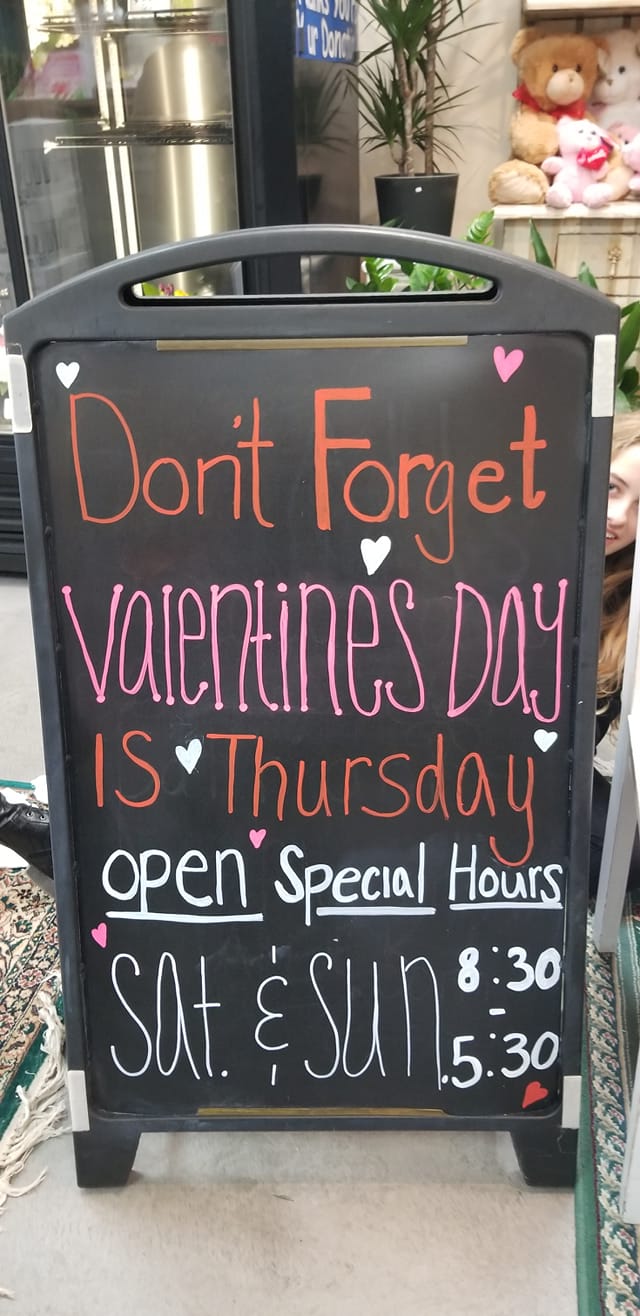 ur Donat
Don't Forget
Valentines Day
Is Thursday
open Special Hours
Sat. & Sun. 8:30
-
5:30